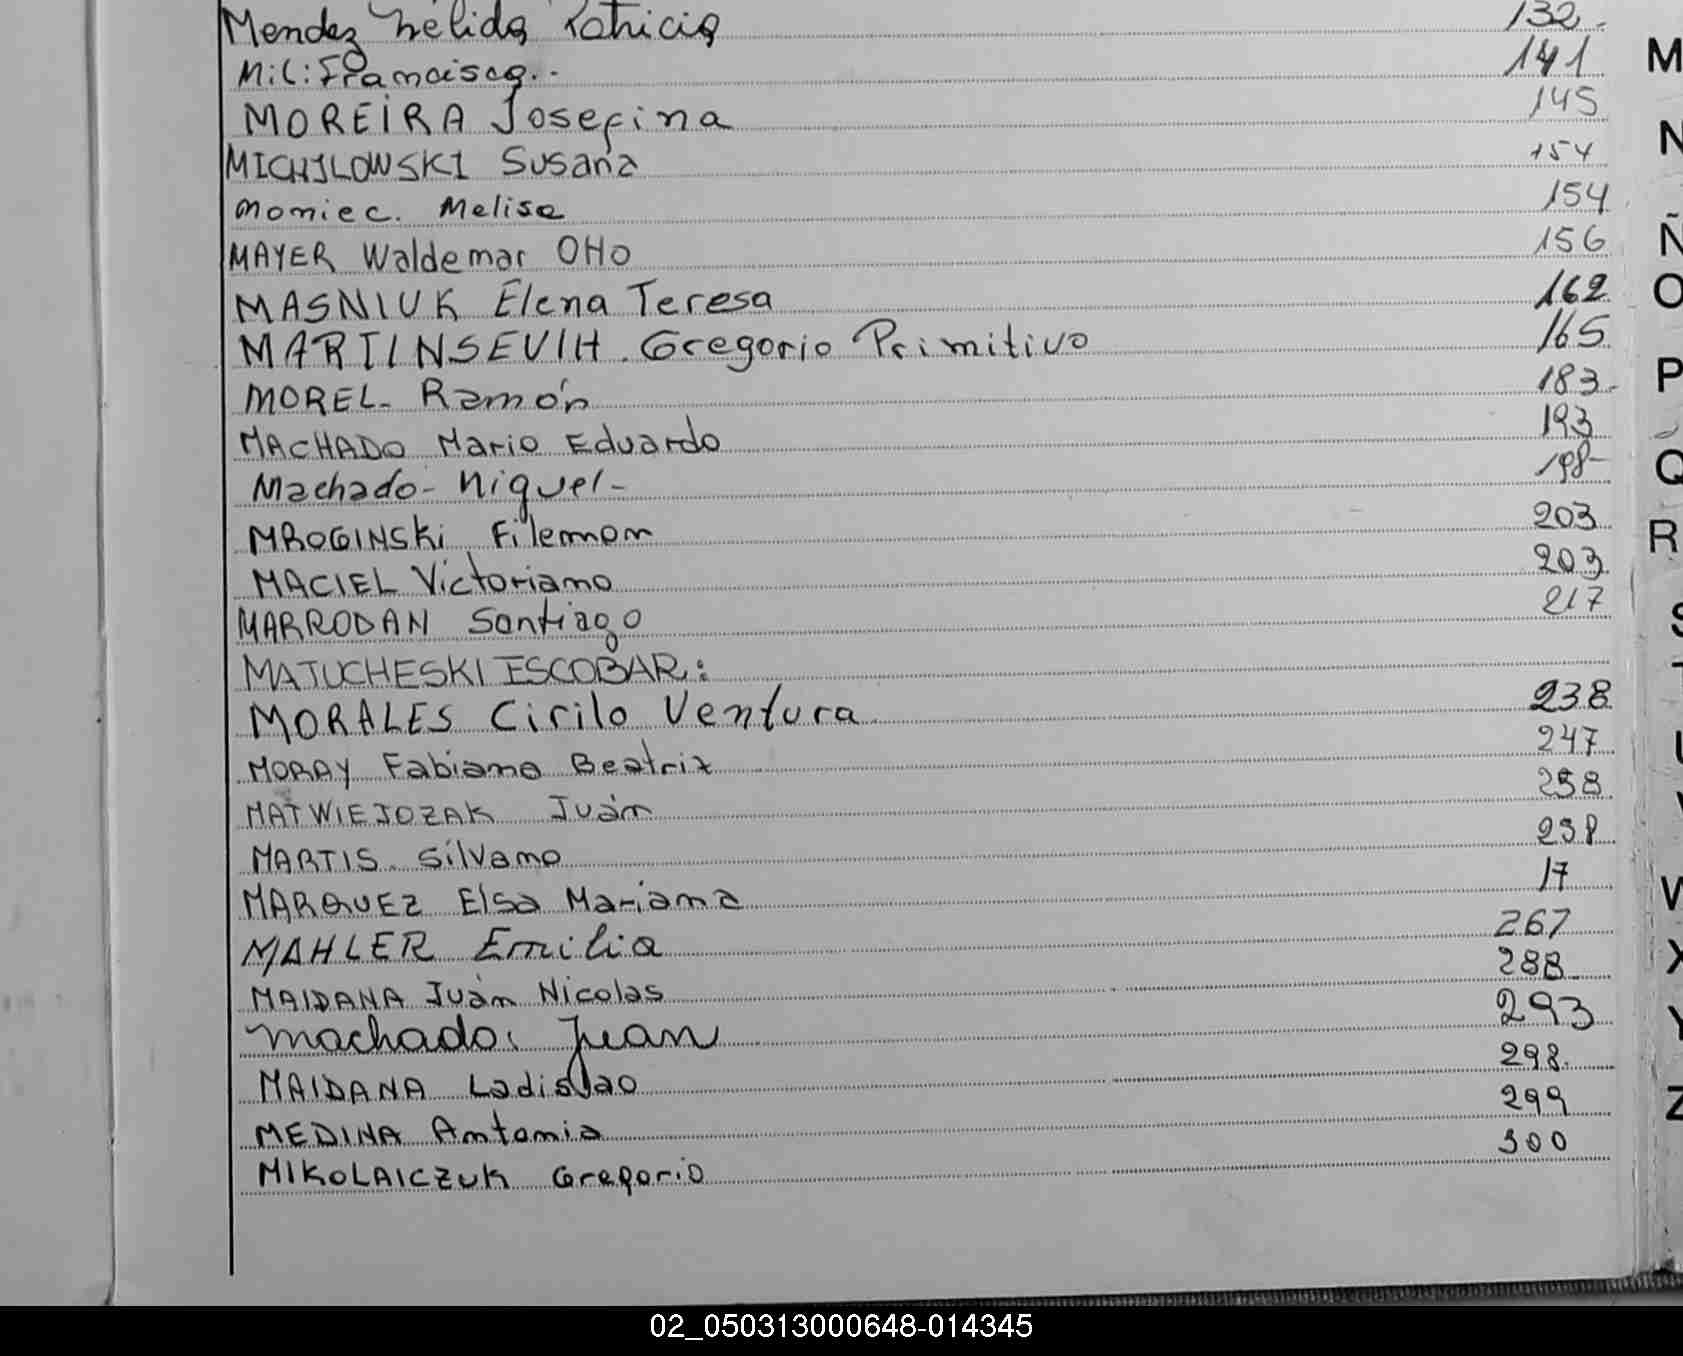 Mendez Nelida Patricia 132.
Mil: Francisca.. 141
MOREIRA Josefina 145
MICHJLOWSKI Susana 154
Moniec. Melisa 154
MAYER Waldemar Otto 156
MASNIUK Elena Teresa 162
MARTINSEVIH. Gregorio Primitivo 165
MOREL- Ramón 183-
MACHADO Mario Eduardo 193
Machado- Miguel- 198-
MROGINSKi Filemon 203
MACIEL Victoriano 203
MARRODAN Santiago 217
MATUCHESKI ESCOBAR:
MORALES Cirilo Ventura 238
MORAY Fabiana Beatriz 247
MATWIEJOZAK Juán 258
MARTIS Silvano 258
MARQUEZ Elsa Mariana 17
MAHLER Emilia 267
MAIDANA Juán Nicolas 288
Machado. Juan 293
MAIDANA Ladislao 298.
MEDINA Antonia 299
MIKOLAICZUK Gregorio 300
M
N
Ñ
O
P
Q
R
S
T
U
V
W
X
Y
Z
02_050313000648-014345